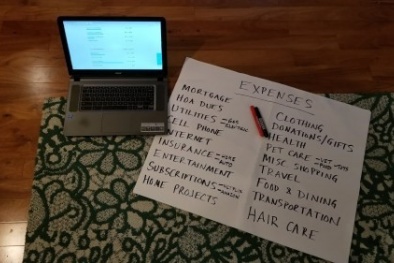 EXPENSES
MORTGAGE
HOA DUES
UTILITIES
CELL PHONE
INTERNET
INSURANCE
ENTERTAINMENT
SUBSCRIPTIONS
HOME PROJECTS
CLOTHING
DONATIONS/GIFTS
HEALTH
PET CARE - VET
MISC SHOPPING
TRAVEL
FOOD & DINING
TRANSPORTATION
HAIR CARE